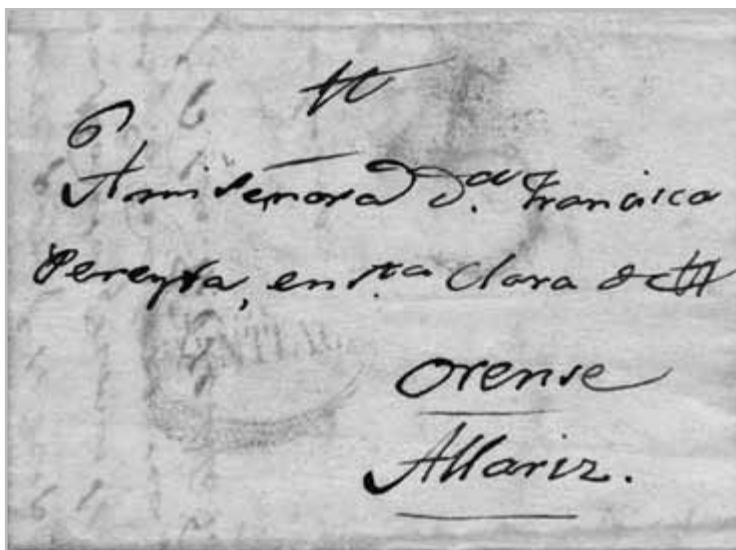 6
A mi Señora D.ª Francisca
Pereyra, en S.ta Clara de
Orense
Allariz.